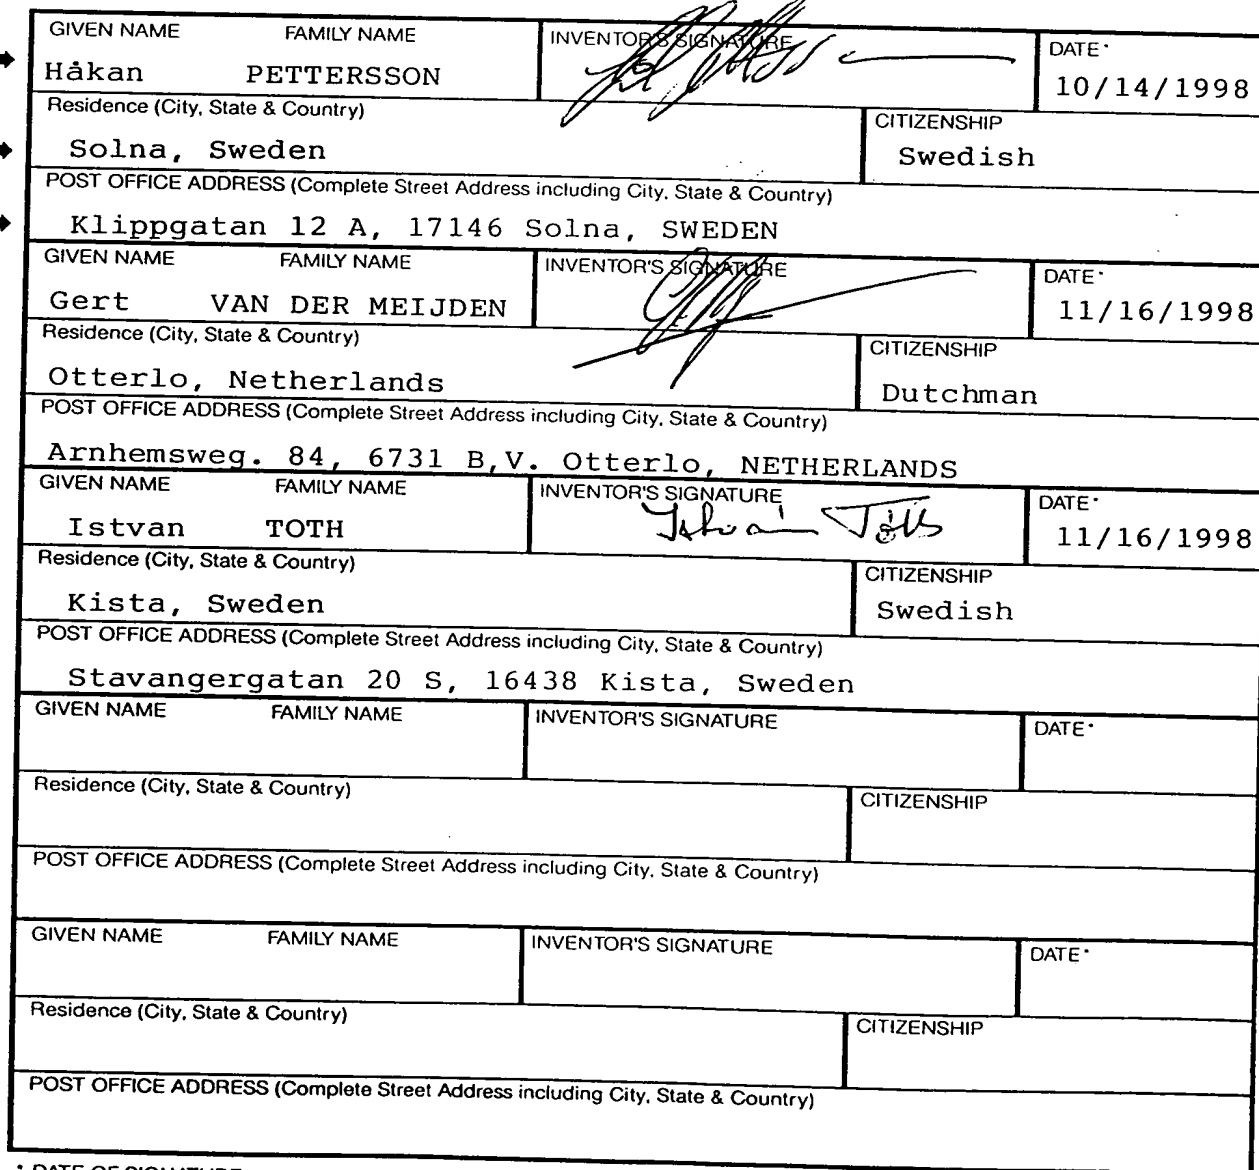 GIVEN NAME FAMILY NAME INVENTOR'S SIGNATURE DATE*
Håkan PETTERSSON 10/14/1998
Residence (City, State & Country) CITIZENSHIP
Solna, Sweden Swedish
POST OFFICE ADDRESS (Complete Street Address including City, State & Country)
Klippgatan 12 A, 17146 Solna, SWEDEN
GIVEN NAME FAMILY NAME INVENTOR'S SIGNATURE DATE*
Gert VAN DER MEIJDEN 11/16/1998
Residence (City, State & Country) CITIZENSHIP
Otterlo, Netherlands Dutchman
POST OFFICE ADDRESS (Complete Street Address including City, State & Country)
Arnhemsweg. 84, 6731 B,V. Otterlo, NETHERLANDS
GIVEN NAME FAMILY NAME INVENTOR'S SIGNATURE DATE*
Istvan TOTH István Tóth 11/16/1998
Residence (City, State & Country) CITIZENSHIP
Kista, Sweden Swedish
POST OFFICE ADDRESS (Complete Street Address including City, State & Country)
Stavangergatan 20 S, 16438 Kista, Sweden
GIVEN NAME FAMILY NAME INVENTOR'S SIGNATURE DATE*
Residence (City, State & Country) CITIZENSHIP
POST OFFICE ADDRESS (Complete Street Address including City, State & Country)
GIVEN NAME FAMILY NAME INVENTOR'S SIGNATURE DATE*
Residence (City, State & Country) CITIZENSHIP
POST OFFICE ADDRESS (Complete Street Address including City, State & Country)
* DATE OF SIGNATURE